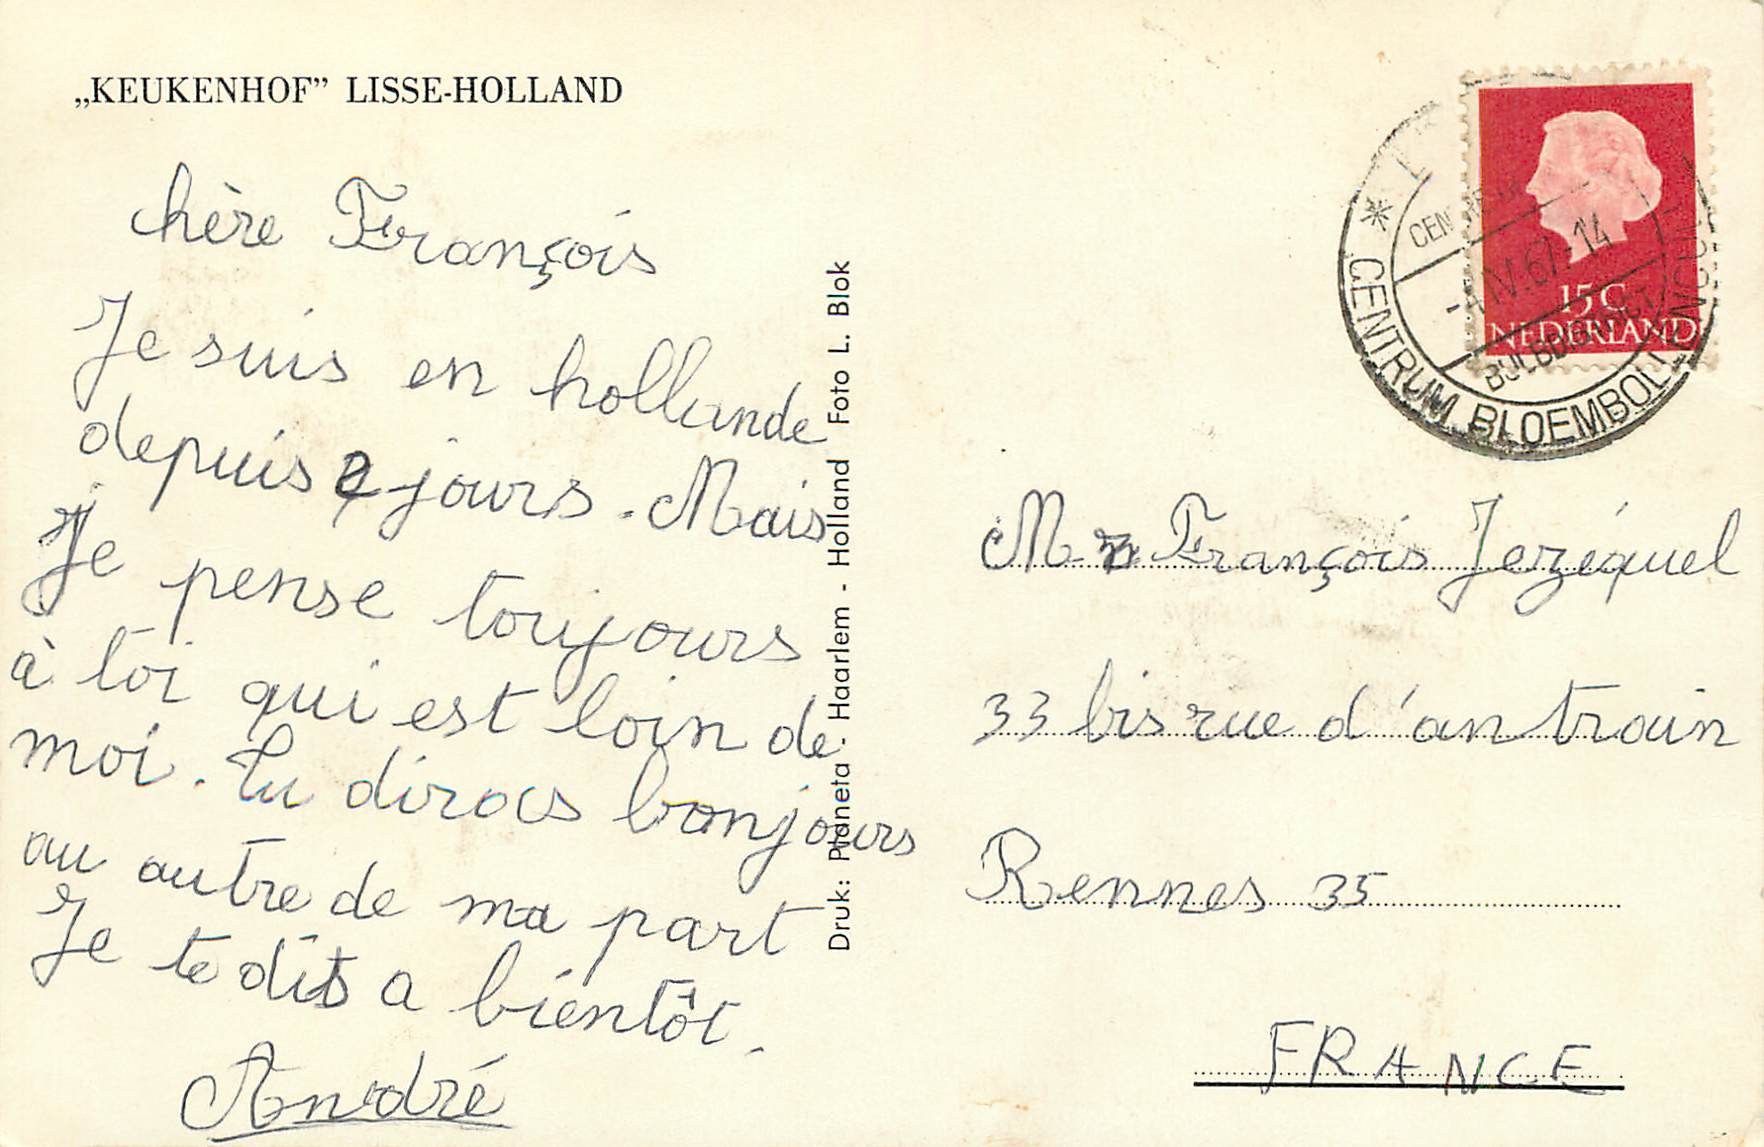 „KEUKENHOF” LISSE-HOLLAND
chère François
Je suis en hollande
depuis 2 jours. Mais
Je pense toujours
à toi qui est loin de
moi. Tu diras bonjours
au autre de ma part
Je te dis a bientôt.
André
Druk: Planeta - Haarlem - Holland Foto L. Blok
15 C
NEDERLAND
CENTRUM BLOEMBOLLEN
-4.IV.67.-14
Mr François Jezéquel
33 bis rue d'antrain
Rennes 35
FRANCE